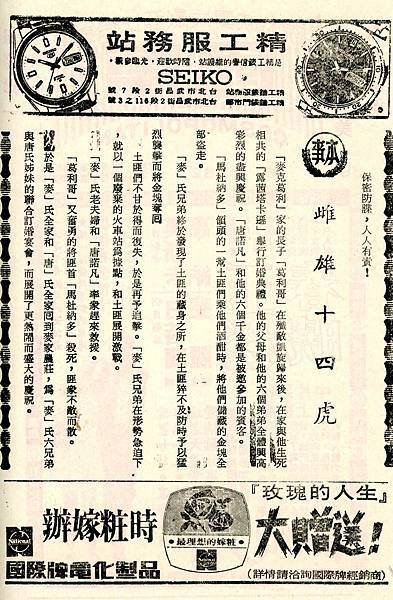 精工服務站
是精工錶信譽的維護站,隨時歡迎,光臨參觀。
SEIKO
精工錶服務站 台北市武昌街2段7號
精工錶門市部 台北市武昌街2段116之3號
保密防諜,人人有責!
本事
雌雄十四虎
「麥克葛利」家的長子「葛利哥」在殲敵凱旋歸來後,在家與他生死
相共的「露茜塔卡遜」舉行訂婚典禮。他的父母和他的六個弟弟全體興高
彩烈的盡興慶祝。「唐諾凡」和他的六個千金都是被邀參加的賓客。
「馬杜納多」領頭的一幫土匪們乘他們酒酣時,將他們儲藏的金塊全
部盜走。
「麥」氏兄弟終於發現了土匪的藏身之所,在土匪猝不及防時予以猛
烈襲擊而將金塊奪回
土匪們不甘於得而復失,於是再予追擊。「麥」氏兄弟在形勢急迫下
,就以一個廢棄的火車站為據點,和土匪展開激戰。
「麥」氏老夫婦和「唐諾凡」率眾趕來救援。
「葛利哥」又奮勇的將匪首「馬杜納多」殺死,匪眾不敵而散。
於是「麥」氏全家和「唐」氏全家回到麥家農莊,為「麥」氏六兄弟
與唐氏姊妹的聯合訂婚宴會,而展開了更熱鬧而盛大的慶祝。
『玫瑰的人生』
大贈送!
(詳情請洽詢國際牌經銷商)
•最理想的嫁粧•
時粧嫁辦
National
國際牌電化製品